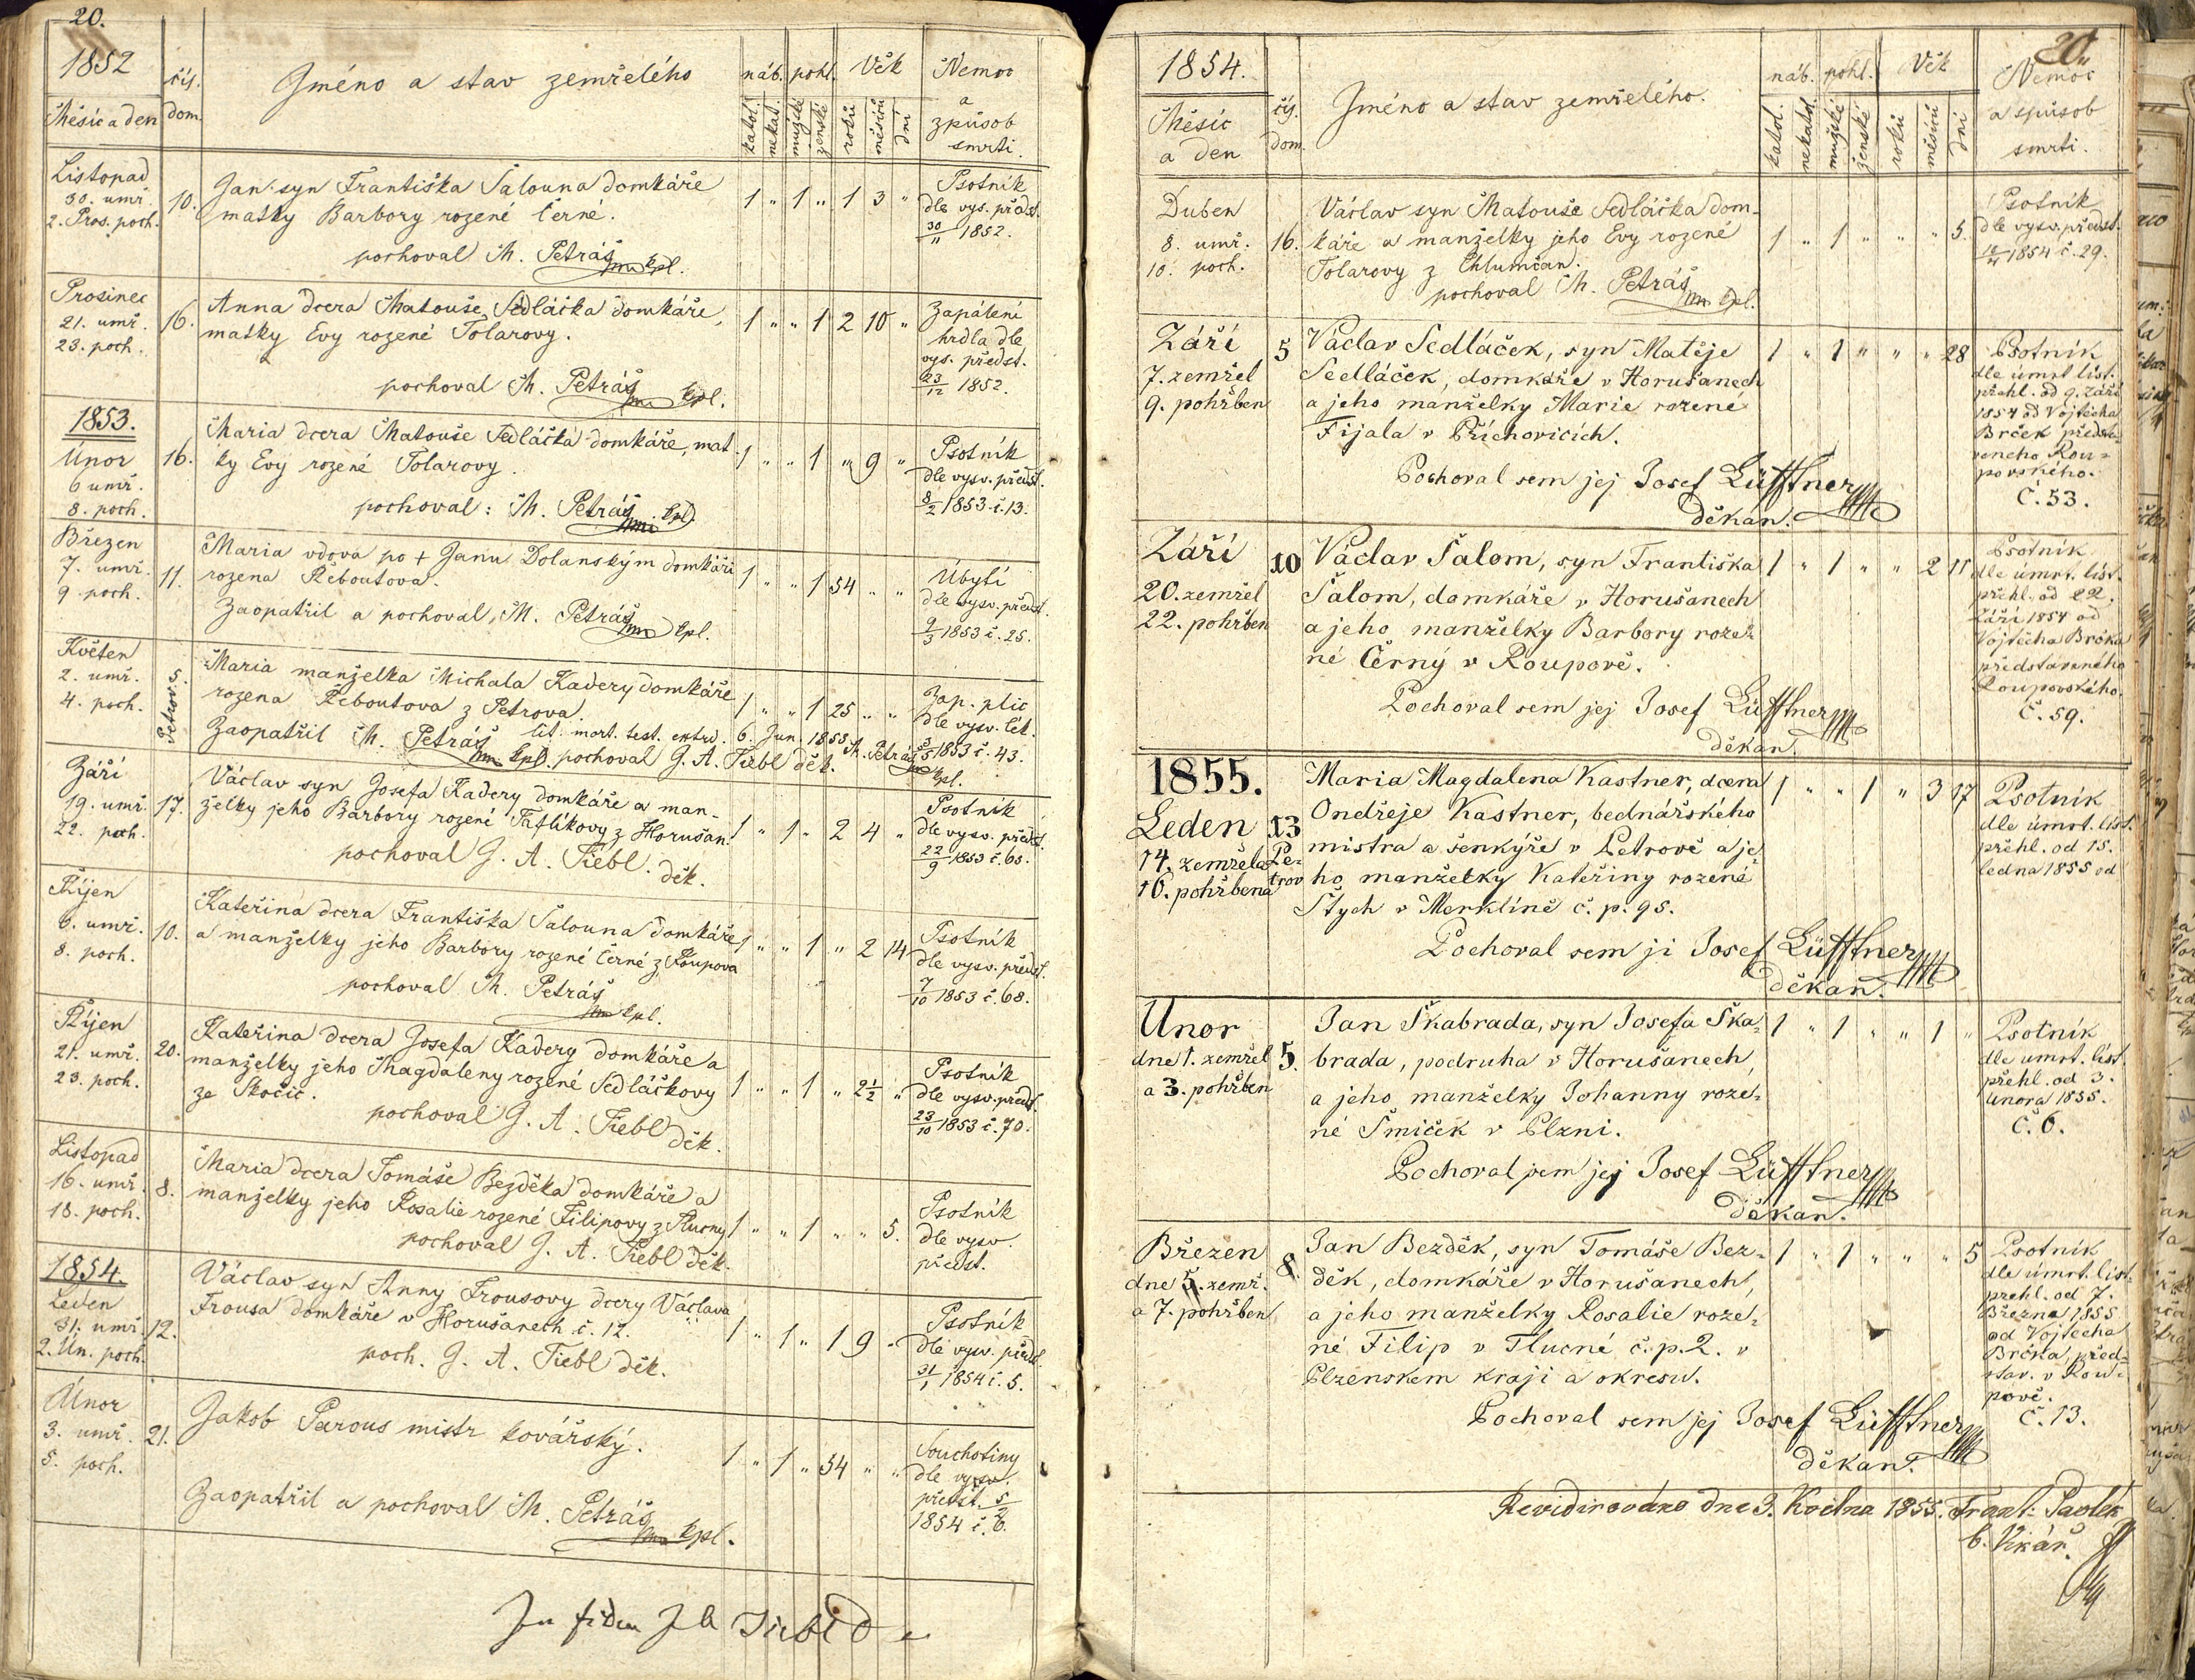 20.
1852
Měsíc a den
čís.
dom.
Jméno a stav zemřelého
náb.
pohl.
Věk
katol.
nekat.
mužské
ženské
roků
měsíců
dní
Nemoc
a
způsob
smrti.
Listopad
30. umř.
2. Pros. poch.
10.
Jan syn Františka Šalouna domkáře
matky Barbory rozené Černé.
pochoval M. Petráš kpl.
1 " 1 " 1 3 "
Psotník
dle vys. předst.
30/11 1852.
Prosinec
21. umř.
23. poch.
16.
Anna dcera Matouše Sedláčka domkáře,
matky Evy rozené Tolarovy.
pochoval M. Petráš kpl.
1 " " 1 2 10 "
Zapálení
hrdla dle
vys. předst.
23/12 1852.
1853.
Únor
6 umř.
8. poch.
16.
Maria dcera Matouše Sedláčka domkáře, mat
ky Evy rozené Tolarovy.
pochoval: M. Petráš kpl.
1 " " 1 " 9 "
Psotník
dle vysv. předst.
8/2 1853 č. 13.
Březen
7. umř.
9. poch.
11.
Maria vdova po + Janu Dolanským domkáři
rozena Řeboutova.
Zaopatřil a pochoval, M. Petráš kpl.
1 " " 1 54 " "
Úbytí
dle vysv. předst.
9/3 1853 č. 25.
Květen
2. umř.
4. poch.
Petrov 5.
Maria manželka Michala Kadery domkáře
rozena Řeboutova z Petrova.
lit. mort. test. extrd. 6. Jun. 1853 M. Petráš kpl.
Zaopatřil M. Petráš kpl. pochoval J. A. Tiebl děk.
1 " " 1 25 " "
Zap. plic
dle vysv. lék.
1853 č. 43.
Září
19. umř.
22. poch.
17.
Václav syn Josefa Kadery domkáře a man-
želky jeho Barbory rozené Taflíkovy z Horušan.
pochoval J. A. Tiebl. děk.
1 " 1 " 2 4 "
Psotník
dle vysv. předst.
22/9 1853 č. 65.
Říjen
6. umř.
8. poch.
10.
Kateřina dcera Františka Šalouna domkáře
a manželky jeho Barbory rozené Černé z Roupova
pochoval M. Petráš kpl.
1 " " 1 " 2 14
Psotník
dle vysv. předst.
7/10 1853 č. 68.
Říjen
21. umř.
23. poch.
20.
Kateřina dcera Josefa Kadery domkáře a
manželky jeho Magdaleny rozené Sedláčkovy
ze Skočic.
pochoval J. A. Tiebl děk.
1 " " 1 " 2½ "
Psotník
dle vysv. předst.
23/10 1853 č. 70.
Listopad
16. umř.
18. poch.
8.
Maria dcera Tomáše Bezděka domkáře a
manželky jeho Rosalie rozené Filipovy z Tlucny
pochoval J. A. Tiebl děk.
1 " " 1 " " 5.
Psotník
dle vysv.
předst.
1854.
Leden
31. umř.
2. Ún. poch.
12.
Václav syn Anny Frousovy dcery Václava
Frousa domkáře v Horušanech č. 12.
poch. J. A. Tiebl děk.
1 " 1 " 1 9 "
Psotník
dle vysv. předst.
31/1 1854 č. 5.
Únor
3. umř.
5. poch.
21.
Jakob Parous mistr kovářský.
Zaopatřil a pochoval M. Petráš kpl.
1 " 1 " 54 " "
Souchotiny
dle vysv.
předst. 5/2
1854 č. 6.
In fidem J A Tiebl
20.
1854.
Měsíc
a den
čís.
dom.
Jméno a stav zemřelého.
náb.
pohl.
Věk
katol.
nekatol.
mužské
ženské
roků
měsíců
dní
Nemoc
a spůsob
smrti.
Duben
8. umř.
10. poch.
16.
Václav syn Matouše Sedláčka dom-
káře a manželky jeho Evy rozené
Tolarovy z Chlumčan.
pochoval M. Petráš kpl.
1 " 1 " " " 5.
Psotník
dle vysv. předst.
1854 č. 29.
Září
7. zemřel
9. pohřben
5
Václav Sedláček, syn Matěje
Sedláček, domkáře v Horušanech
a jeho manželky Marie rozené
Fijala v Příchovicích.
Pochoval sem jej Josef Lüfftner
děkan.
1 " 1 " " " 28
Psotník
dle úmrt. list.
přehl. od 9. Září
1854 od Vojtěcha
Brček předsta-
veneho Rou-
povského.
Č. 53.
Září
20. zemřel
22. pohřben
10
Václav Šalom, syn Františka
Šalom, domkáře v Horušanech
a jeho manželky Barbory roze-
né Černý v Roupově.
Pochoval sem jej Josef Lüfftner
děkan.
1 " 1 " " 2 11
Psotník
dle úmrt. list.
přehl. od 22.
Září 1854 od
Vojtěcha Brčka
představeného
Roupovského.
Č. 59.
1855.
Leden
14. zemřela
16. pohřbena
13
Pe-
trov
Maria Magdalena Kastner, dcera
Ondřeje Kastner, bednářského
mistra a šenkýře v Petrově a je-
ho manželky Kateřiny rozené
Štych v Merklíně č. p. 95.
Pochoval sem ji Josef Lüfftner
děkan.
1 " " 1 " 3 17
Psotník
dle úmrt. list.
přehl. od 15.
ledna 1855 od
Únor
dne 1. zemřel
a 3. pohřben
5.
Jan Škabrada, syn Josefa Ška-
brada, podruha v Horušanech,
a jeho manželky Johanny roze-
né Šmiček v Plzni.
Pochoval sem jej Josef Lüfftner
děkan.
1 " 1 " " 1 "
Psotník
dle umrt. list.
přehl. od 3.
Února 1855.
Č. 6.
Březen
dne 5. zemř.
a 7. pohřben
8.
Jan Bezděk, syn Tomáše Bez-
děk, domkáře v Horušanech,
a jeho manželky Rosalie roze-
né Filip v Tlucné č. p. 2. v
Plzenskem kraji a okresu.
Pochoval sem jej Josef Lüfftner
děkan.
1 " 1 " " " 5
Psotník
dle úmrt. list.
přehl. od 7.
Března 1855
od Vojtěcha
Brčka, před-
stav. v Rou-
pově.
Č. 13.
Revidirováno dne 3. Května 1855. Frant. Pavlek
b. Vikář.